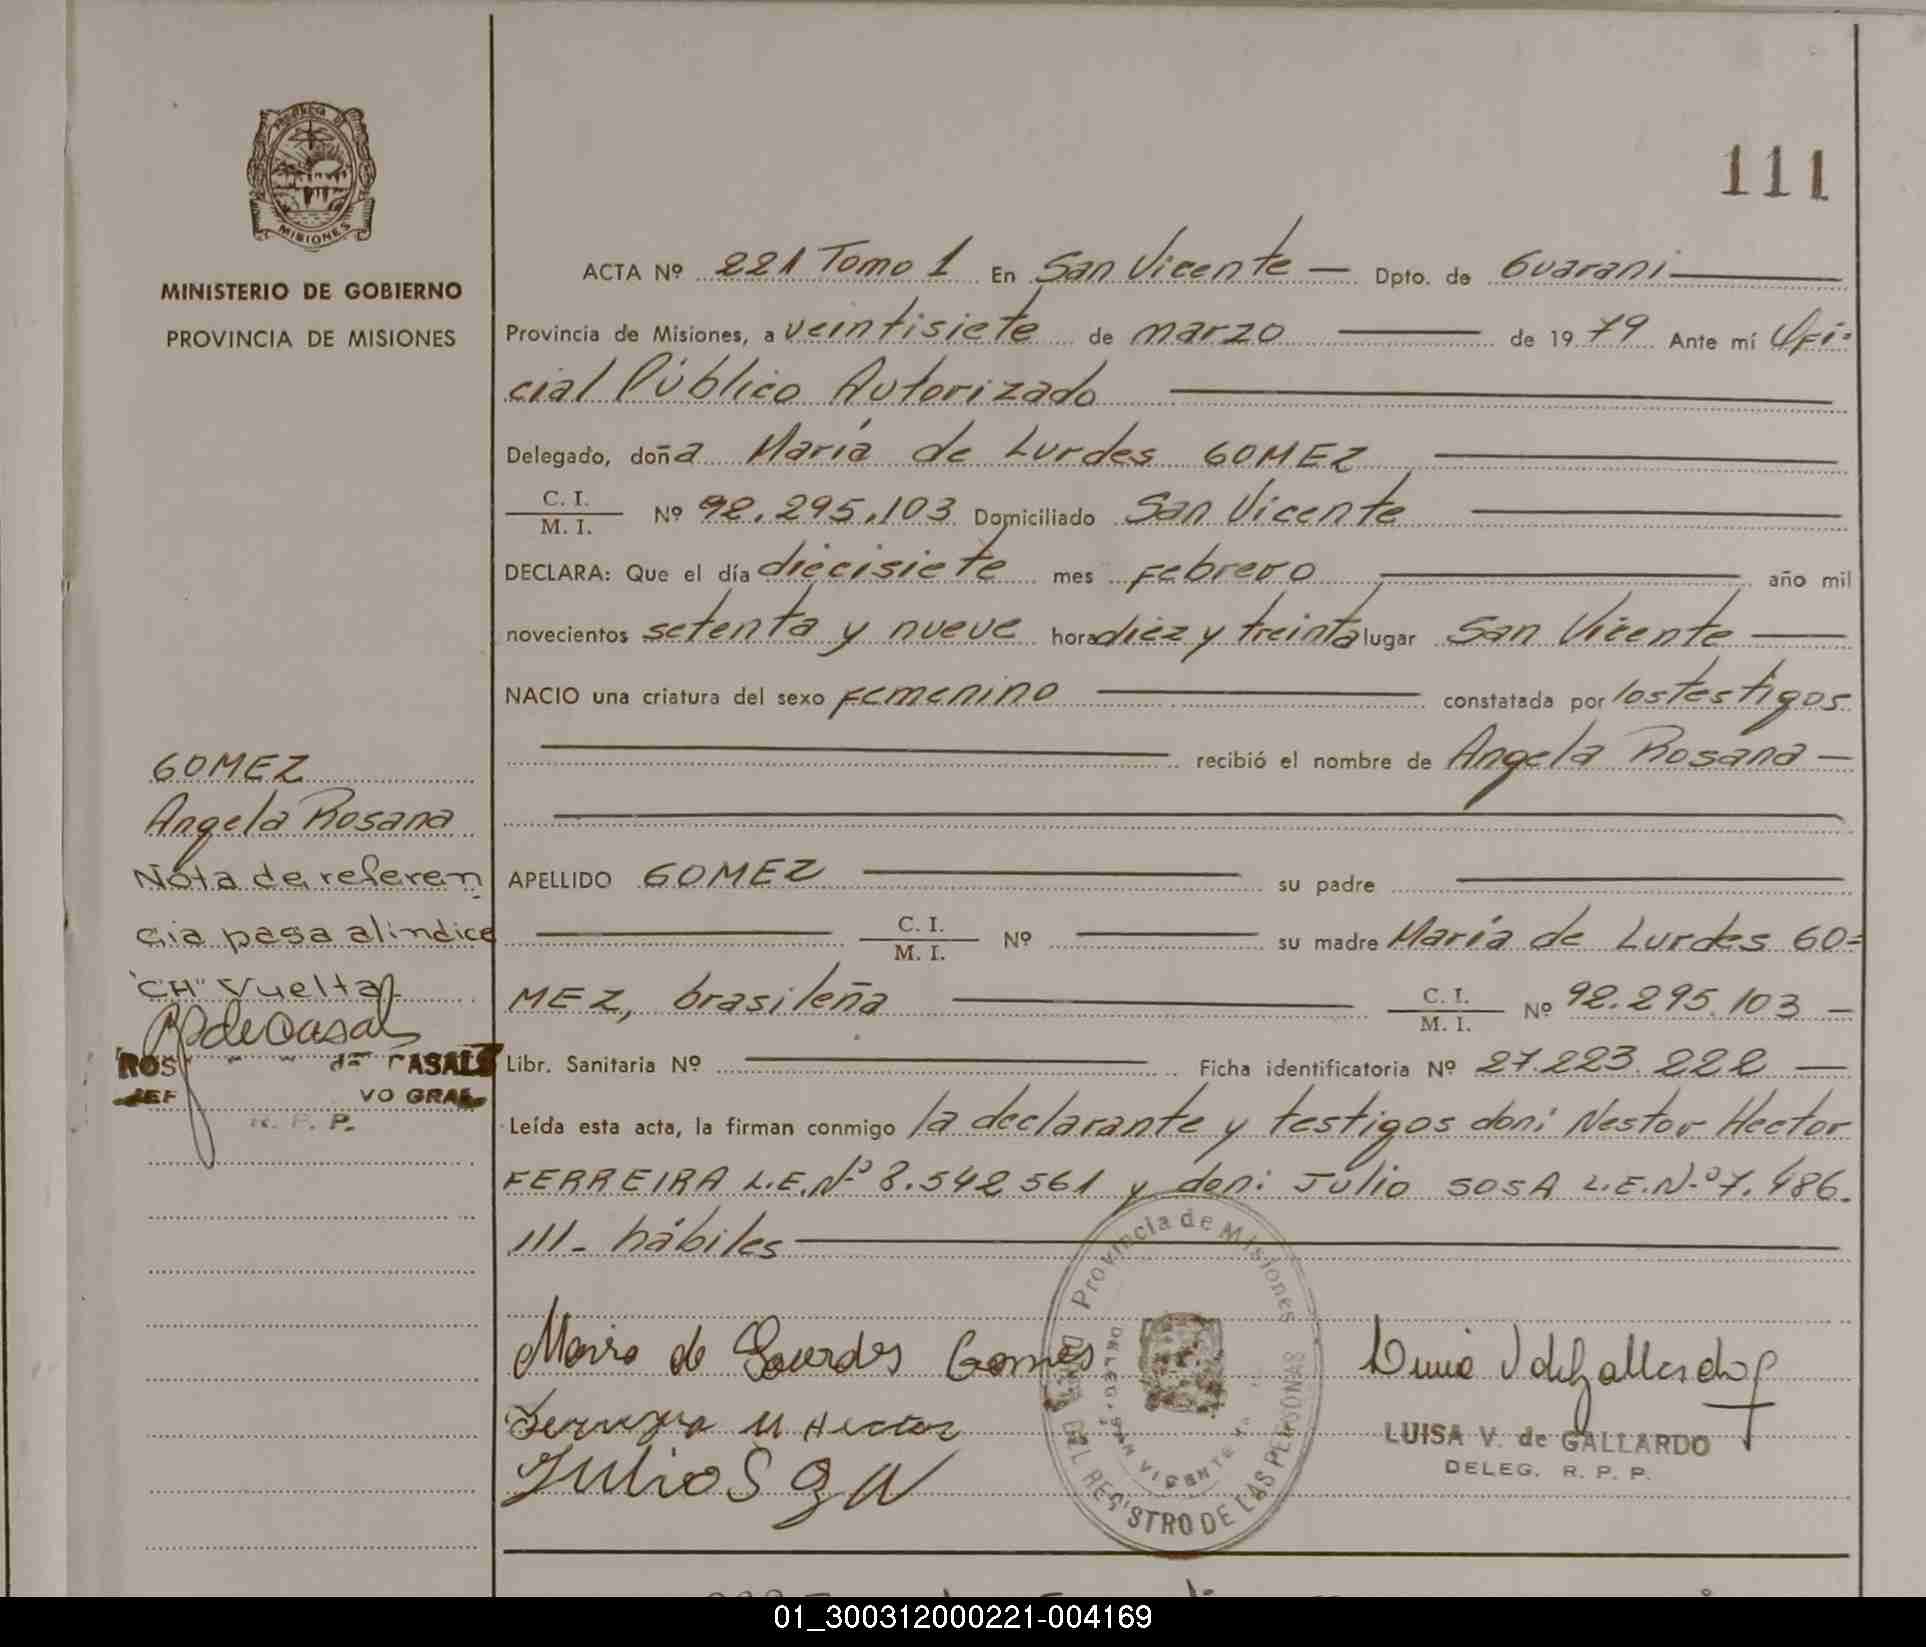 111
PROVINCIA DE
MISIONES
MINISTERIO DE GOBIERNO
PROVINCIA DE MISIONES
ACTA Nº 221 Tomo 1 En San Vicente — Dpto. de Guarani
Provincia de Misiones, a veintisiete de marzo de 1979 Ante mí Ofi-
cial Público Autorizado
Delegado, doña María de Lurdes GOMEZ
C. I.
M. I. Nº 92.295.103 Domiciliado San Vicente
DECLARA: Que el día diecisiete mes Febrero año mil
novecientos setenta y nueve hora diez y treinta lugar San Vicente
NACIO una criatura del sexo Femenino constatada por los testigos
recibió el nombre de Angela Rosana —
APELLIDO GOMEZ su padre
C. I.
M. I. Nº su madre María de Lurdes GO=
MEZ, brasileña C. I.
M. I. Nº 92.295.103 —
Libr. Sanitaria Nº Ficha identificatoria Nº 27.223.222 —
Leída esta acta, la firman conmigo la declarante y testigos don: Nestor Hector
FERREIRA L.E.Nº 8.542561 y don: Julio SOSA L.E.Nº 7.486.
111- hábiles
GOMEZ
Angela Rosana
Nota de referen
cia pasa al indice
"CH" Vuelta
de Casals
ROS de CASALS
JEF VO GRAL
R. P. P.
Maria de Lourdes Gomes
Ferreyra N Hector
Julio S
Luisa V de Gallardo
LUISA V. de GALLARDO
DELEG. R. P. P.
Provincia de Misiones
DEL REGISTRO DE LAS PERSONAS
DELEG. SAN VICENTE
01_300312000221-004169